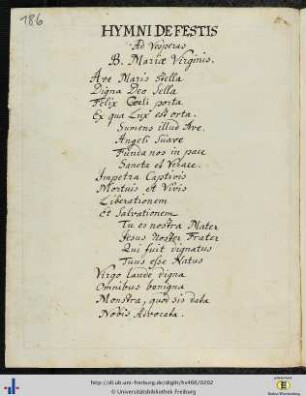 186
HYMNI DE FESTIS
Ad Vesperas
B. Mariæ Virginis.
Ave Maris Stella
Digna Deo Sella
Felix Cœli porta
Ex qua Lux est orta.
Sumens illud Ave.
Angeli Suave
Funda nos in pace
Sancta et Verace.
Impetra Captivis
Mortuis et Vivis
Liberationem
Et Salvationem
Tu es nostra Mater
Jesus Noster Frater
Qui fuit dignatus
Tuus esse Natus
Virgo laude digna
Omnibus benigna
Monstra, quod sis data
Nobis Advocata.
http://dl.ub.uni-freiburg.de/diglit/hs466/0202
© Universitätsbibliothek Freiburg